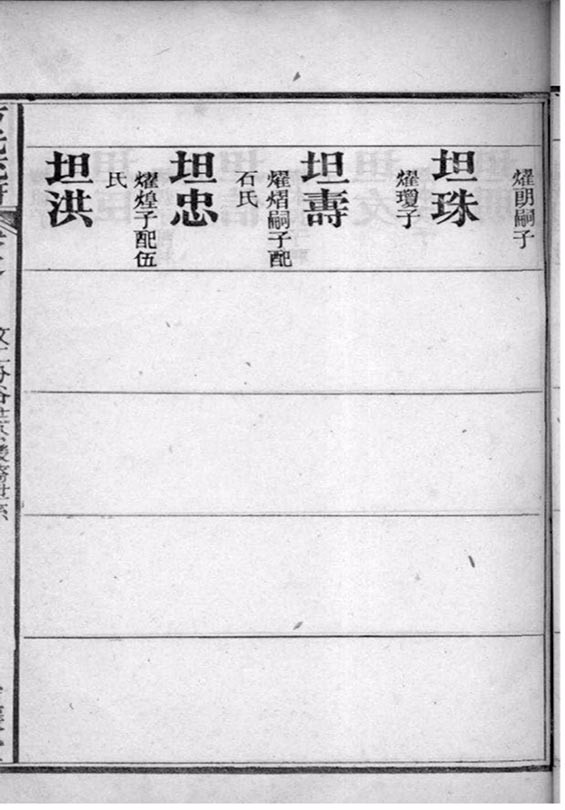 燿朗嗣子
坦珠
燿瓊子
坦壽
燿熠嗣子配
石氏
坦忠
燿煌子配伍
氏
坦洪